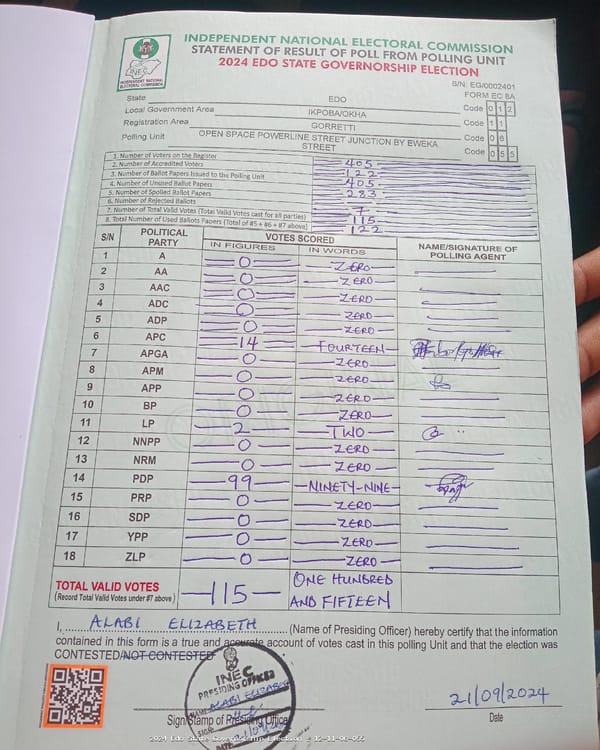 INDEPENDENT NATIONAL ELECTORAL COMMISSION
STATEMENT OF RESULT OF POLL FROM POLLING UNIT
2024 EDO STATE GOVERNORSHIP ELECTION
INEC
INDEPENDENT NATIONAL ELECTORAL COMMISSION
S/N: EG/0002401
FORM EC 8A
State EDO Code 0 1 2
Local Government Area IKPOBA/OKHA Code 1 1
Registration Area GORRETTI Code 0 6
Polling Unit OPEN SPACE POWERLINE STREET JUNCTION BY EWEKA STREET Code 0 5 5
1. Number of Voters on the Register 405
2. Number of Accredited Voters 122
3. Number of Ballot Papers Issued to the Polling Unit 405
4. Number of Unused Ballot Papers 283
5. Number of Spoiled Ballot Papers
6. Number of Rejected Ballots 7
7. Number of Total Valid Votes (Total Valid Votes cast for all parties) 115
8. Total Number of Used Ballots Papers (Total of #5 + #6 + #7 above) 122
S/N POLITICAL PARTY VOTES SCORED NAME/SIGNATURE OF POLLING AGENT
IN FIGURES IN WORDS
1 A 0 ZERO
2 AA 0 ZERO
3 AAC 0 ZERO
4 ADC 0 ZERO
5 ADP 0 ZERO
6 APC 14 FOURTEEN
7 APGA 0 ZERO
8 APM 0 ZERO
9 APP 0 ZERO
10 BP 0 ZERO
11 LP 2 TWO
12 NNPP 0 ZERO
13 NRM 0 ZERO
14 PDP 99 NINETY-NINE
15 PRP 0 ZERO
16 SDP 0 ZERO
17 YPP 0 ZERO
18 ZLP 0 ZERO
TOTAL VALID VOTES 115 ONE HUNDRED
(Record Total Valid Votes under #7 above) AND FIFTEEN
I, ALABI ELIZABETH (Name of Presiding Officer) hereby certify that the information
contained in this form is a true and accurate account of votes cast in this polling Unit and that the election was
CONTESTED/NOT CONTESTED
INEC
PRESIDING OFFICER
ALABI ELIZABETH
DATE
21/09/2024
Sign/Stamp of Presiding Officer Date
2024 Edo State Governorship Election - 12-11-06-055